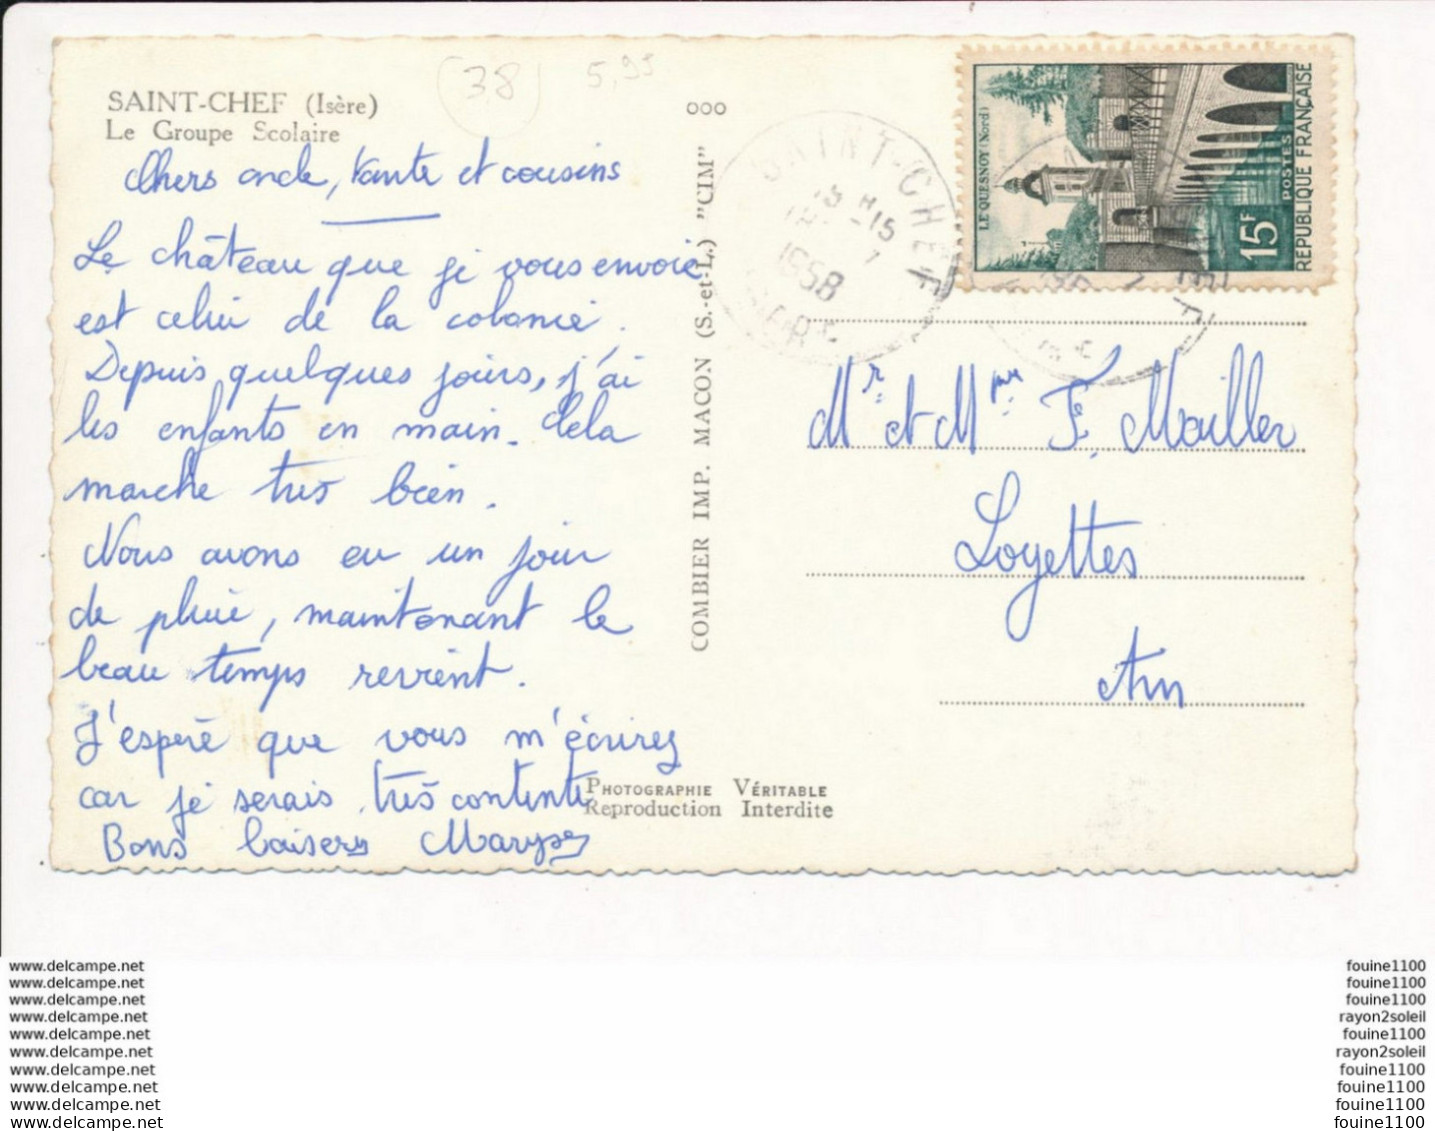 SAINT-CHEF (Isère)
Le Groupe Scolaire
38
5,95
Chers oncle, tante et cousins
Le château que je vous envoie
est celui de la colonie.
Depuis quelques jours, j'ai
les enfants en main. Cela
marche très bien.
Nous avons eu un jour
de pluie, maintenant le
beau temps revient.
J'espère que vous m'écrirez
car je serais très contente
Bons baisers Maryse
ooo
COMBIER IMP. MACON (S.-et-L.) "CIM"
PHOTOGRAPHIE VÉRITABLE
Reproduction Interdite
SAINT-CHEF
1958
ISERE
LE QUESNOY (Nord)
15F
POSTES
REPUBLIQUE FRANÇAISE
Mr et Mme F. Mailler
Loyettes
Ain
www.delcampe.net
www.delcampe.net
www.delcampe.net
www.delcampe.net
www.delcampe.net
www.delcampe.net
www.delcampe.net
www.delcampe.net
www.delcampe.net
www.delcampe.net
fouine1100
fouine1100
fouine1100
rayon2soleil
fouine1100
rayon2soleil
fouine1100
fouine1100
fouine1100
fouine1100